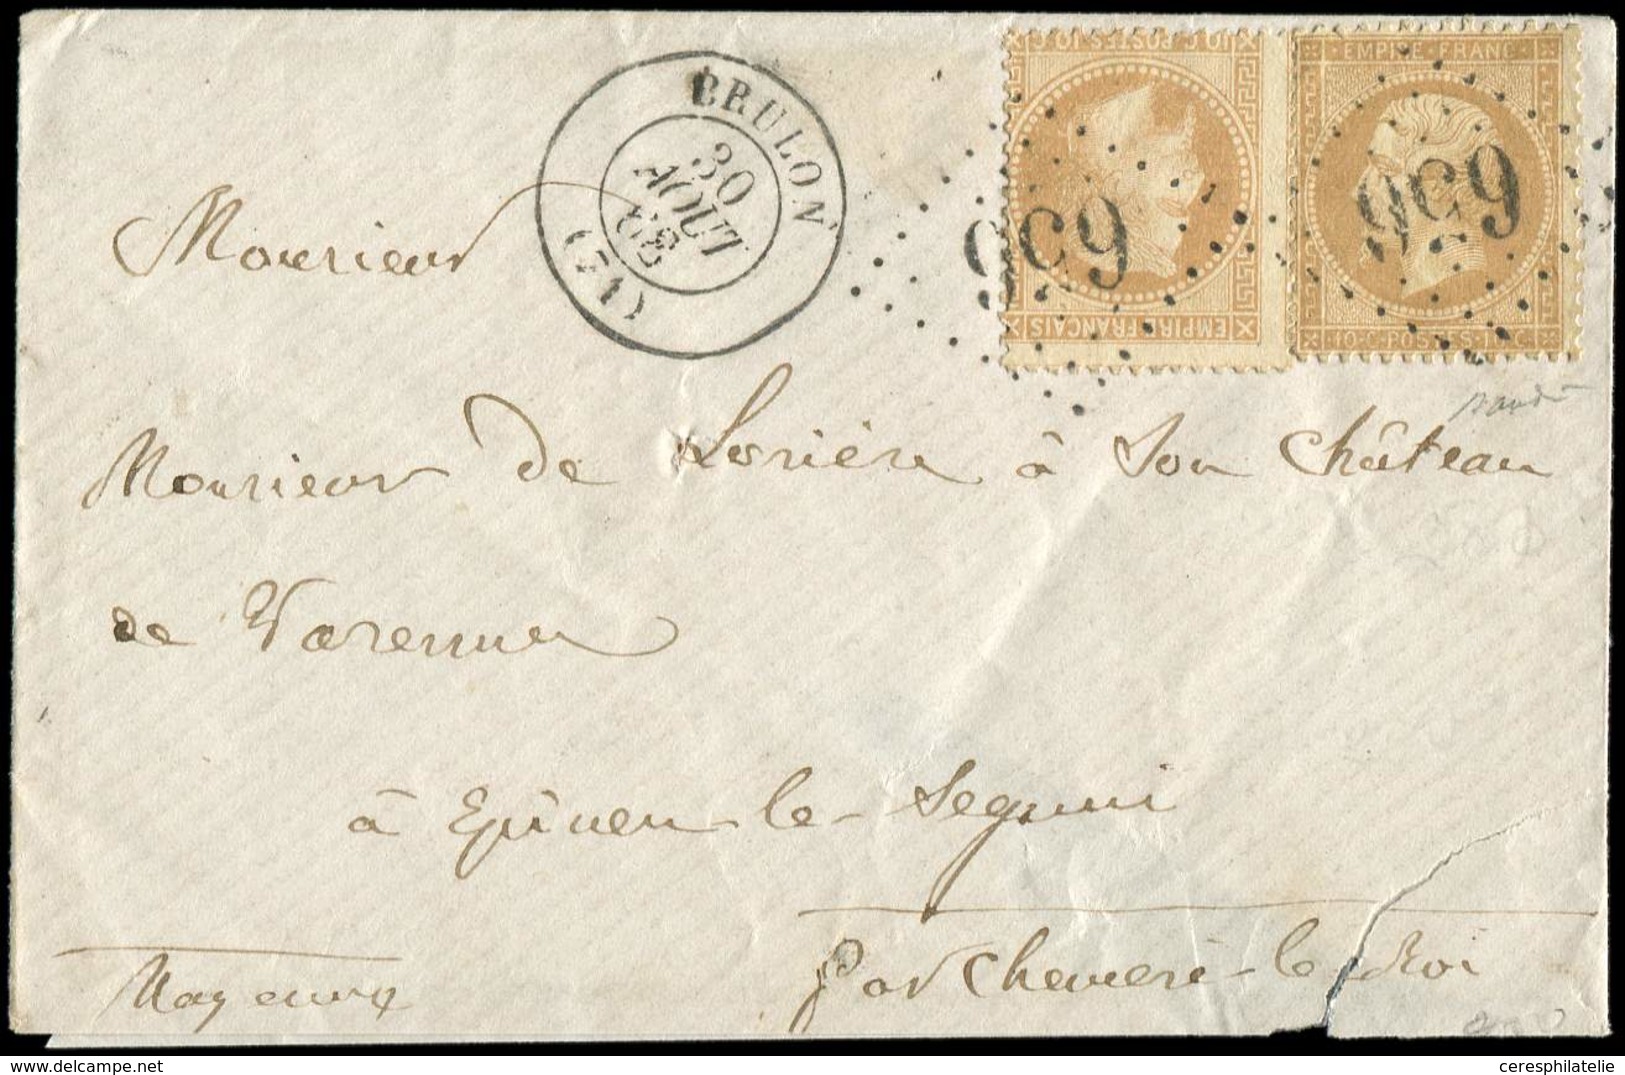 BRULON
30
AOUT
68
(71)
10 C. POSTES 10 C.
EMPIRE FRANÇAIS
656
EMPIRE FRANC
10 C POSTES 10 C
656
Monsieur
Monsieur de Lorière à Son Château
de Varennes
à Epineu-le-Seguin
par Chemeré-le-Roi
Mayenne
ceresphilatelie